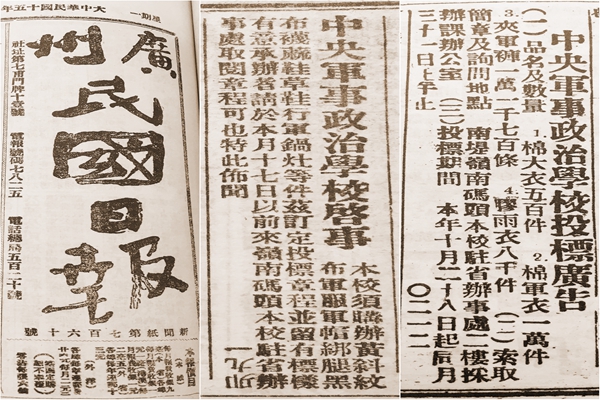 大中華民國十五年
星期一
廣州民國日報
社址第七甫門牌十壹號
電報號碼七八二五
電話總局五百二十號
新聞紙第七百六十號
中央軍事政治學校啓事
本校須購辦黃斜紋
布軍服軍帽綁腿黑
布襪蔴鞋草鞋行軍鍋灶等件茲訂定投標章程並留有標樣
有意承辦者請於本月十七日以前來嶺南碼頭本校駐省辦
事處取閱章程可也特此佈聞
一九
中央軍事政治學校投標廣告
(一)品名及數量 1.棉大衣五百件 2.棉軍衣一萬件
3.夾軍褲一萬二千七百條 4.膠雨衣八千件 (二)索取
簡章及詢問地點 南堤嶺南碼頭本校駐省辦事處二樓採
辦課辦公室 (三)投標期間 本年十月二十八日起同月
三十一日上午止
〇二一二